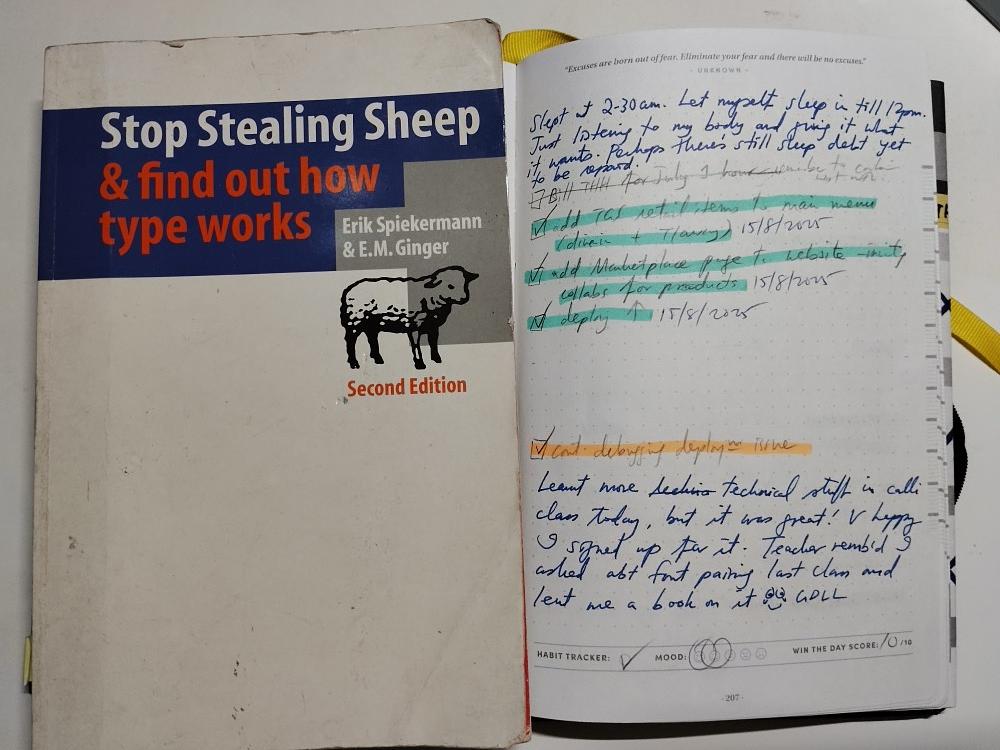 Stop Stealing Sheep
& find out how
type works
Erik Spiekermann
& E.M. Ginger
Second Edition
"Excuses are born out of fear. Eliminate your fear and there will be no excuses."
- UNKNOWN -
Slept at 2-30am. Let myself sleep in till 12pm.
Just listening to my body and giving it what
it wants. Perhaps there's still sleep debt yet
to be repaid.
Bill for July 1 hour
add retail items to main menu
(dinein + T/away) 15/8/2025
add Marketplace page to website -
collabs for products 15/8/2025
deploy ↑ 15/8/2025
cont. debugging issue
Learnt more technical stuff in calli
class today, but it was great! V happy
I signed up for it. Teacher remb'd I
asked abt font pairing last class and
lent me a book on it
HABIT TRACKER: MOOD: WIN THE DAY SCORE: 10 /10
- 207 -